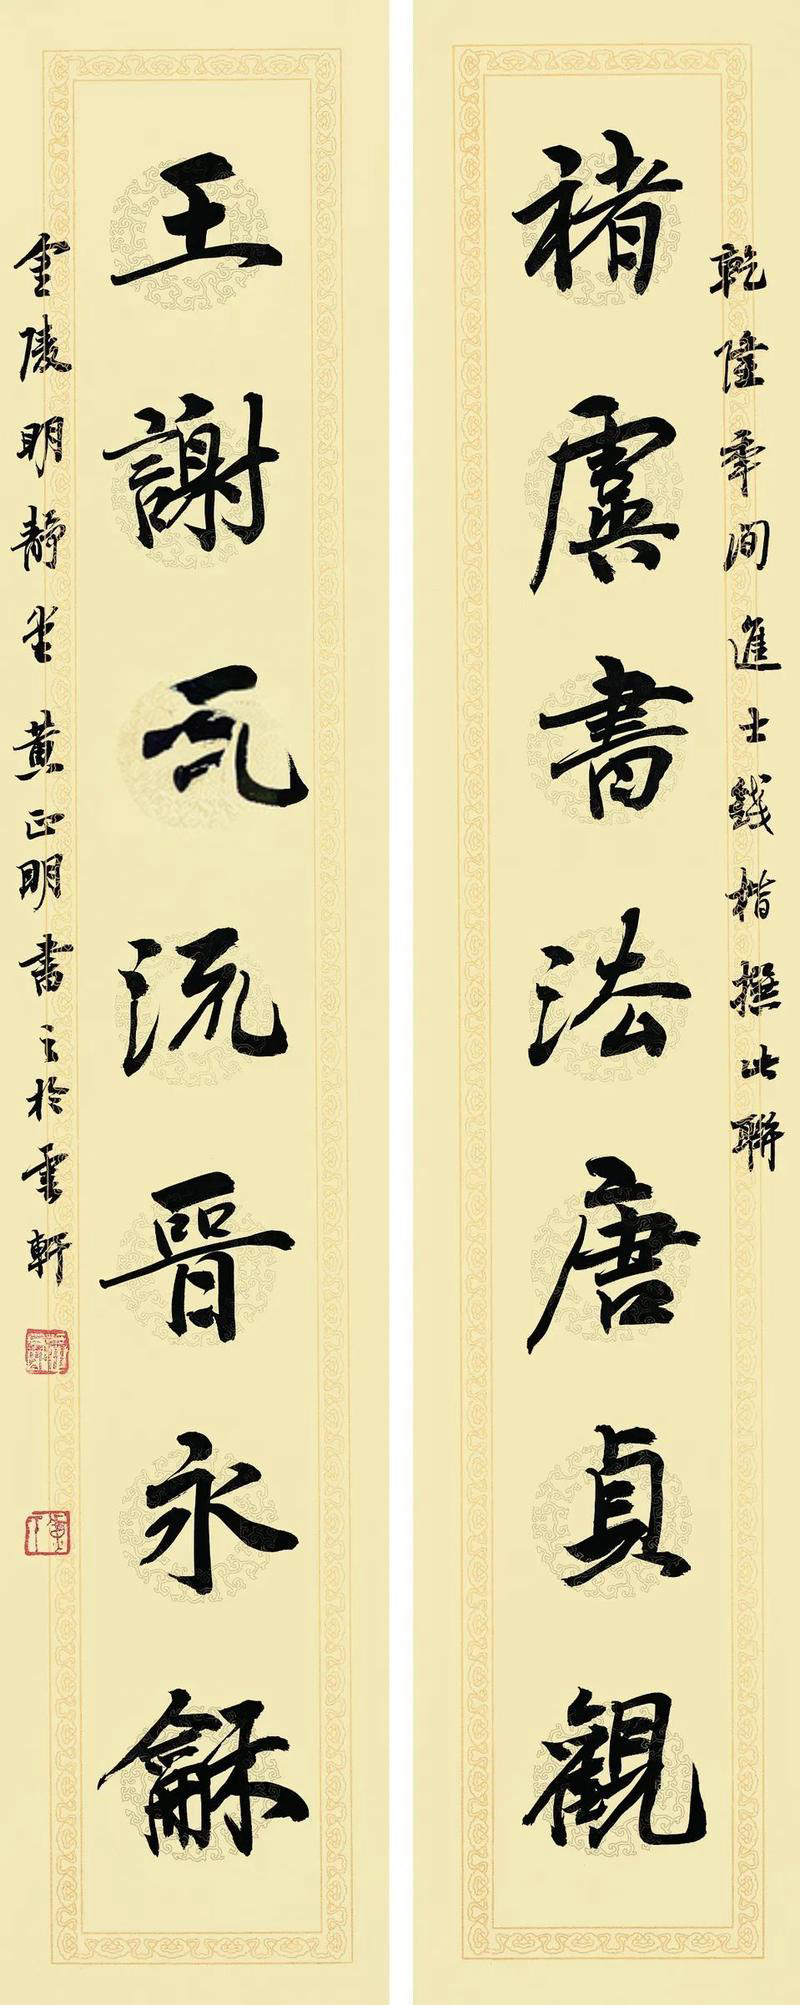 乾隆年間進士錢楷撰此聯
褚虞書法唐貞觀
王謝流晉永龢
金陵明靜堂黃正明書之於雲軒